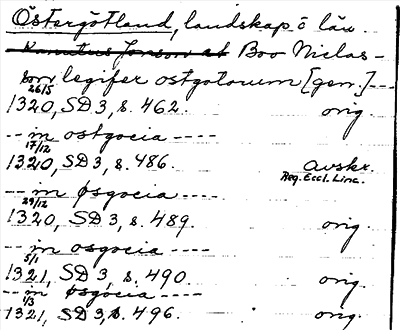 Östergötland, landskap o län
Knutus Jonson et Boo Niclas-
son legifer ostgotorum [gen.]---
26/5
1320, SD 3, s. 462. orig.
-- in ostgocia ----
17/12
1320, SD 3, s. 486. Avskr.
Reg. Eccl. Linc.
-- in øsgocia ----
29/12
1320, SD 3, s. 489. orig.
-- in osgocia ----
5/1
1321, SD 3, s. 490. orig.
-- in øsgocia ----
1/3
1321, SD 3, s. 496. orig.